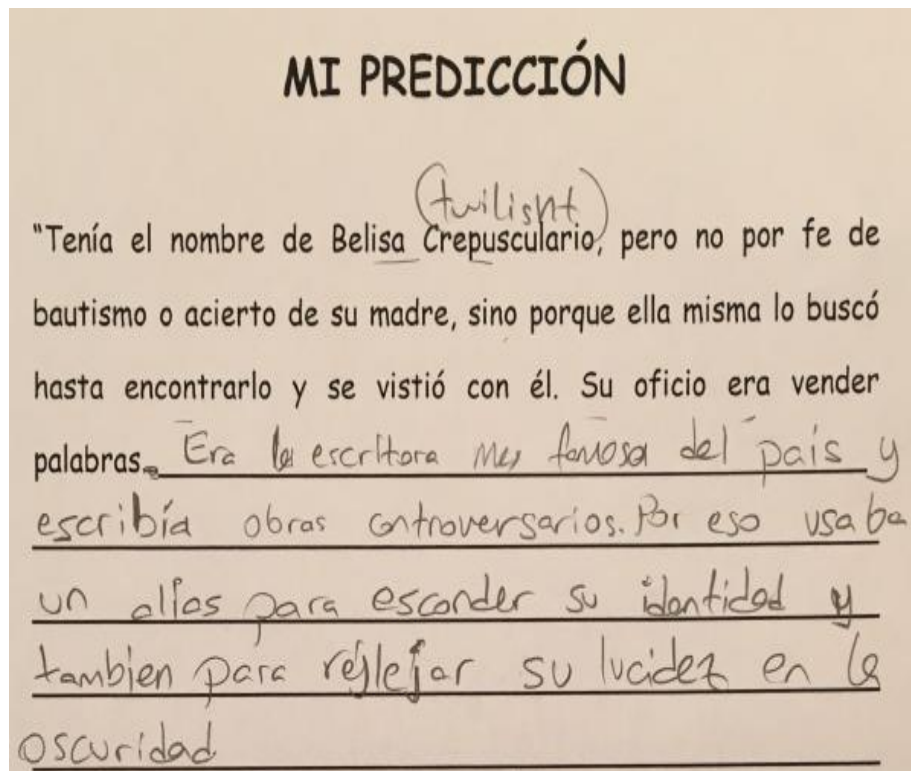 MI PREDICCIÓN
(twilight)
"Tenía el nombre de Belisa Crepusculario, pero no por fe de
bautismo o acierto de su madre, sino porque ella misma lo buscó
hasta encontrarlo y se vistió con él. Su oficio era vender
palabras. Era la escritora más famosa del país y
escribía obras controversarios. Por eso usaba
un alias para esconder su identidad y
tambien para reflejar su lucidez en la
oscuridad